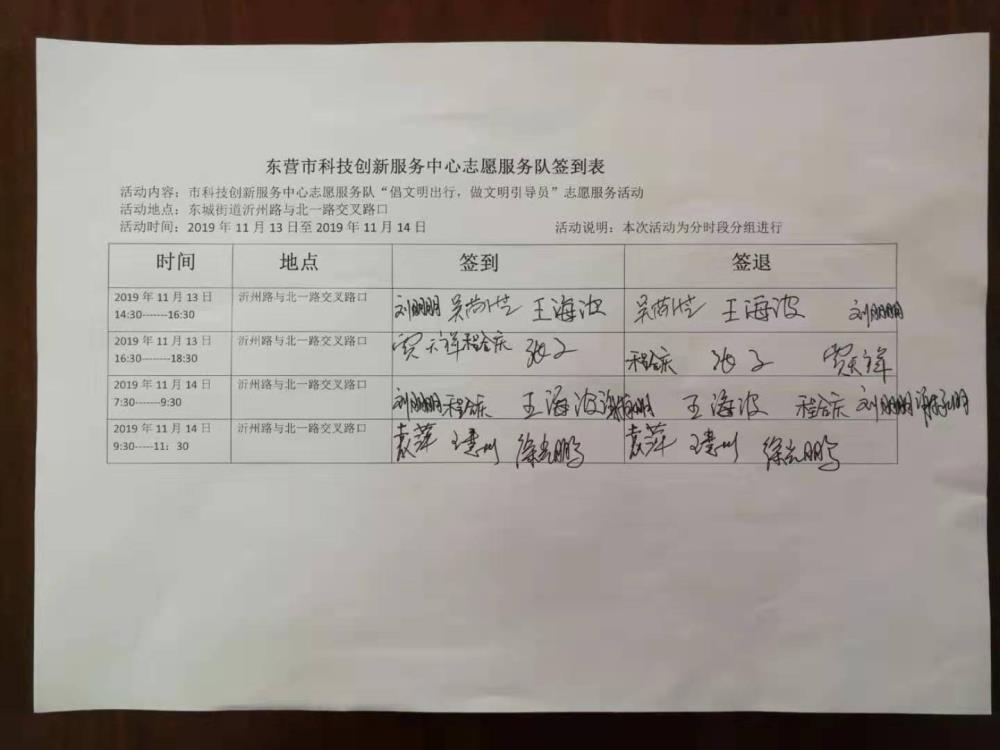 东营市科技创新服务中心志愿服务队签到表
活动内容：市科技创新服务中心志愿服务队“倡文明出行，做文明引导员”志愿服务活动
活动地点：东城街道沂州路与北一路交叉路口
活动时间：2019 年 11 月 13 日至 2019 年 11 月 14 日 活动说明：本次活动为分时段分组进行
时间 地点 签到 签退
2019 年 11 月 13 日 沂州路与北一路交叉路口 刘朋朋 王海波 王海波 刘朋朋
14:30-------16:30
2019 年 11 月 13 日 沂州路与北一路交叉路口 贾天祥 程合庆 程合庆 贾天祥
16:30-------18:30
2019 年 11 月 14 日 沂州路与北一路交叉路口 刘朋朋 程合庆 王海波 王海波 程合庆 刘朋朋
7:30-----9:30
2019 年 11 月 14 日 沂州路与北一路交叉路口 袁萍 徐光鹏 袁萍 徐光鹏
9:30----11：30